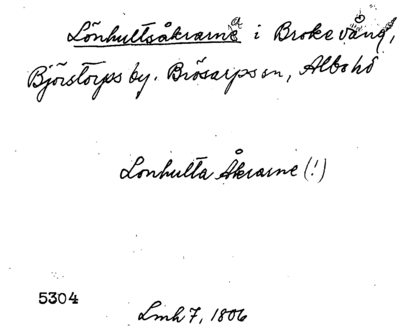 Lönhultsåkrarna i Broke vång,
Björstorps by. Brösarps sn, Albo hd
Lonhulta Åkrarne (!)
5304
Lmh 7, 1806